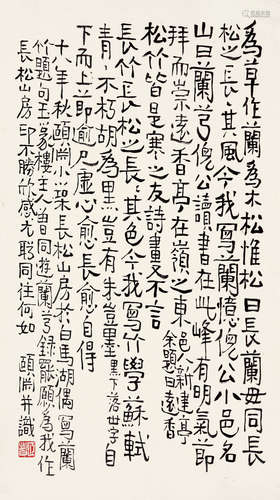 為草作蘭為木松惟松曰長蘭毋同長
松之長長其風今我寫蘭憶倪公小邑名
山曰蘭芎倪公讀書在此峰有明氣節
拜而崇遠香亭在嶺之東邑人新建亭余題曰遠香
松竹皆是寒之友詩畫又不言
長竹長松之長長其色今我寫竹學蘇軾
青青不朽胡為黑豈有朱豈墨墨下落世字自
下而上節逾尺虛心愈長愈自得
十八年秋頤淵小築長松山房於白馬湖偶寫蘭
竹題句玉篆樓主人曾同遊蘭芎錄歌願為我作
長松山房印不勝欣感尤盼同往何如 頤淵并識